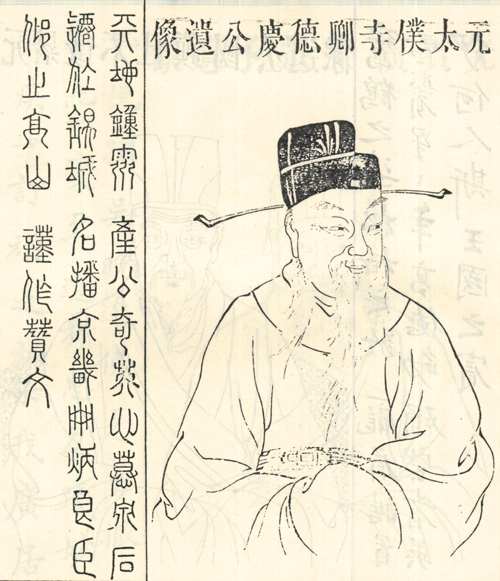 元太僕寺卿德慶公遺像
天地鍾靈 產公奇英 心慕泉石
遷於錫城 名播京畿 冊炳良臣
仰止高山 謹作贊文